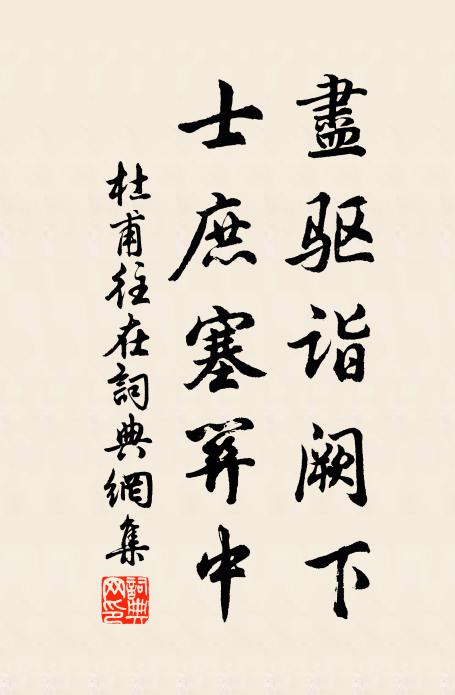 盡驱诣阙下
士庶塞关中
杜甫往在詞典網集
詞典网印